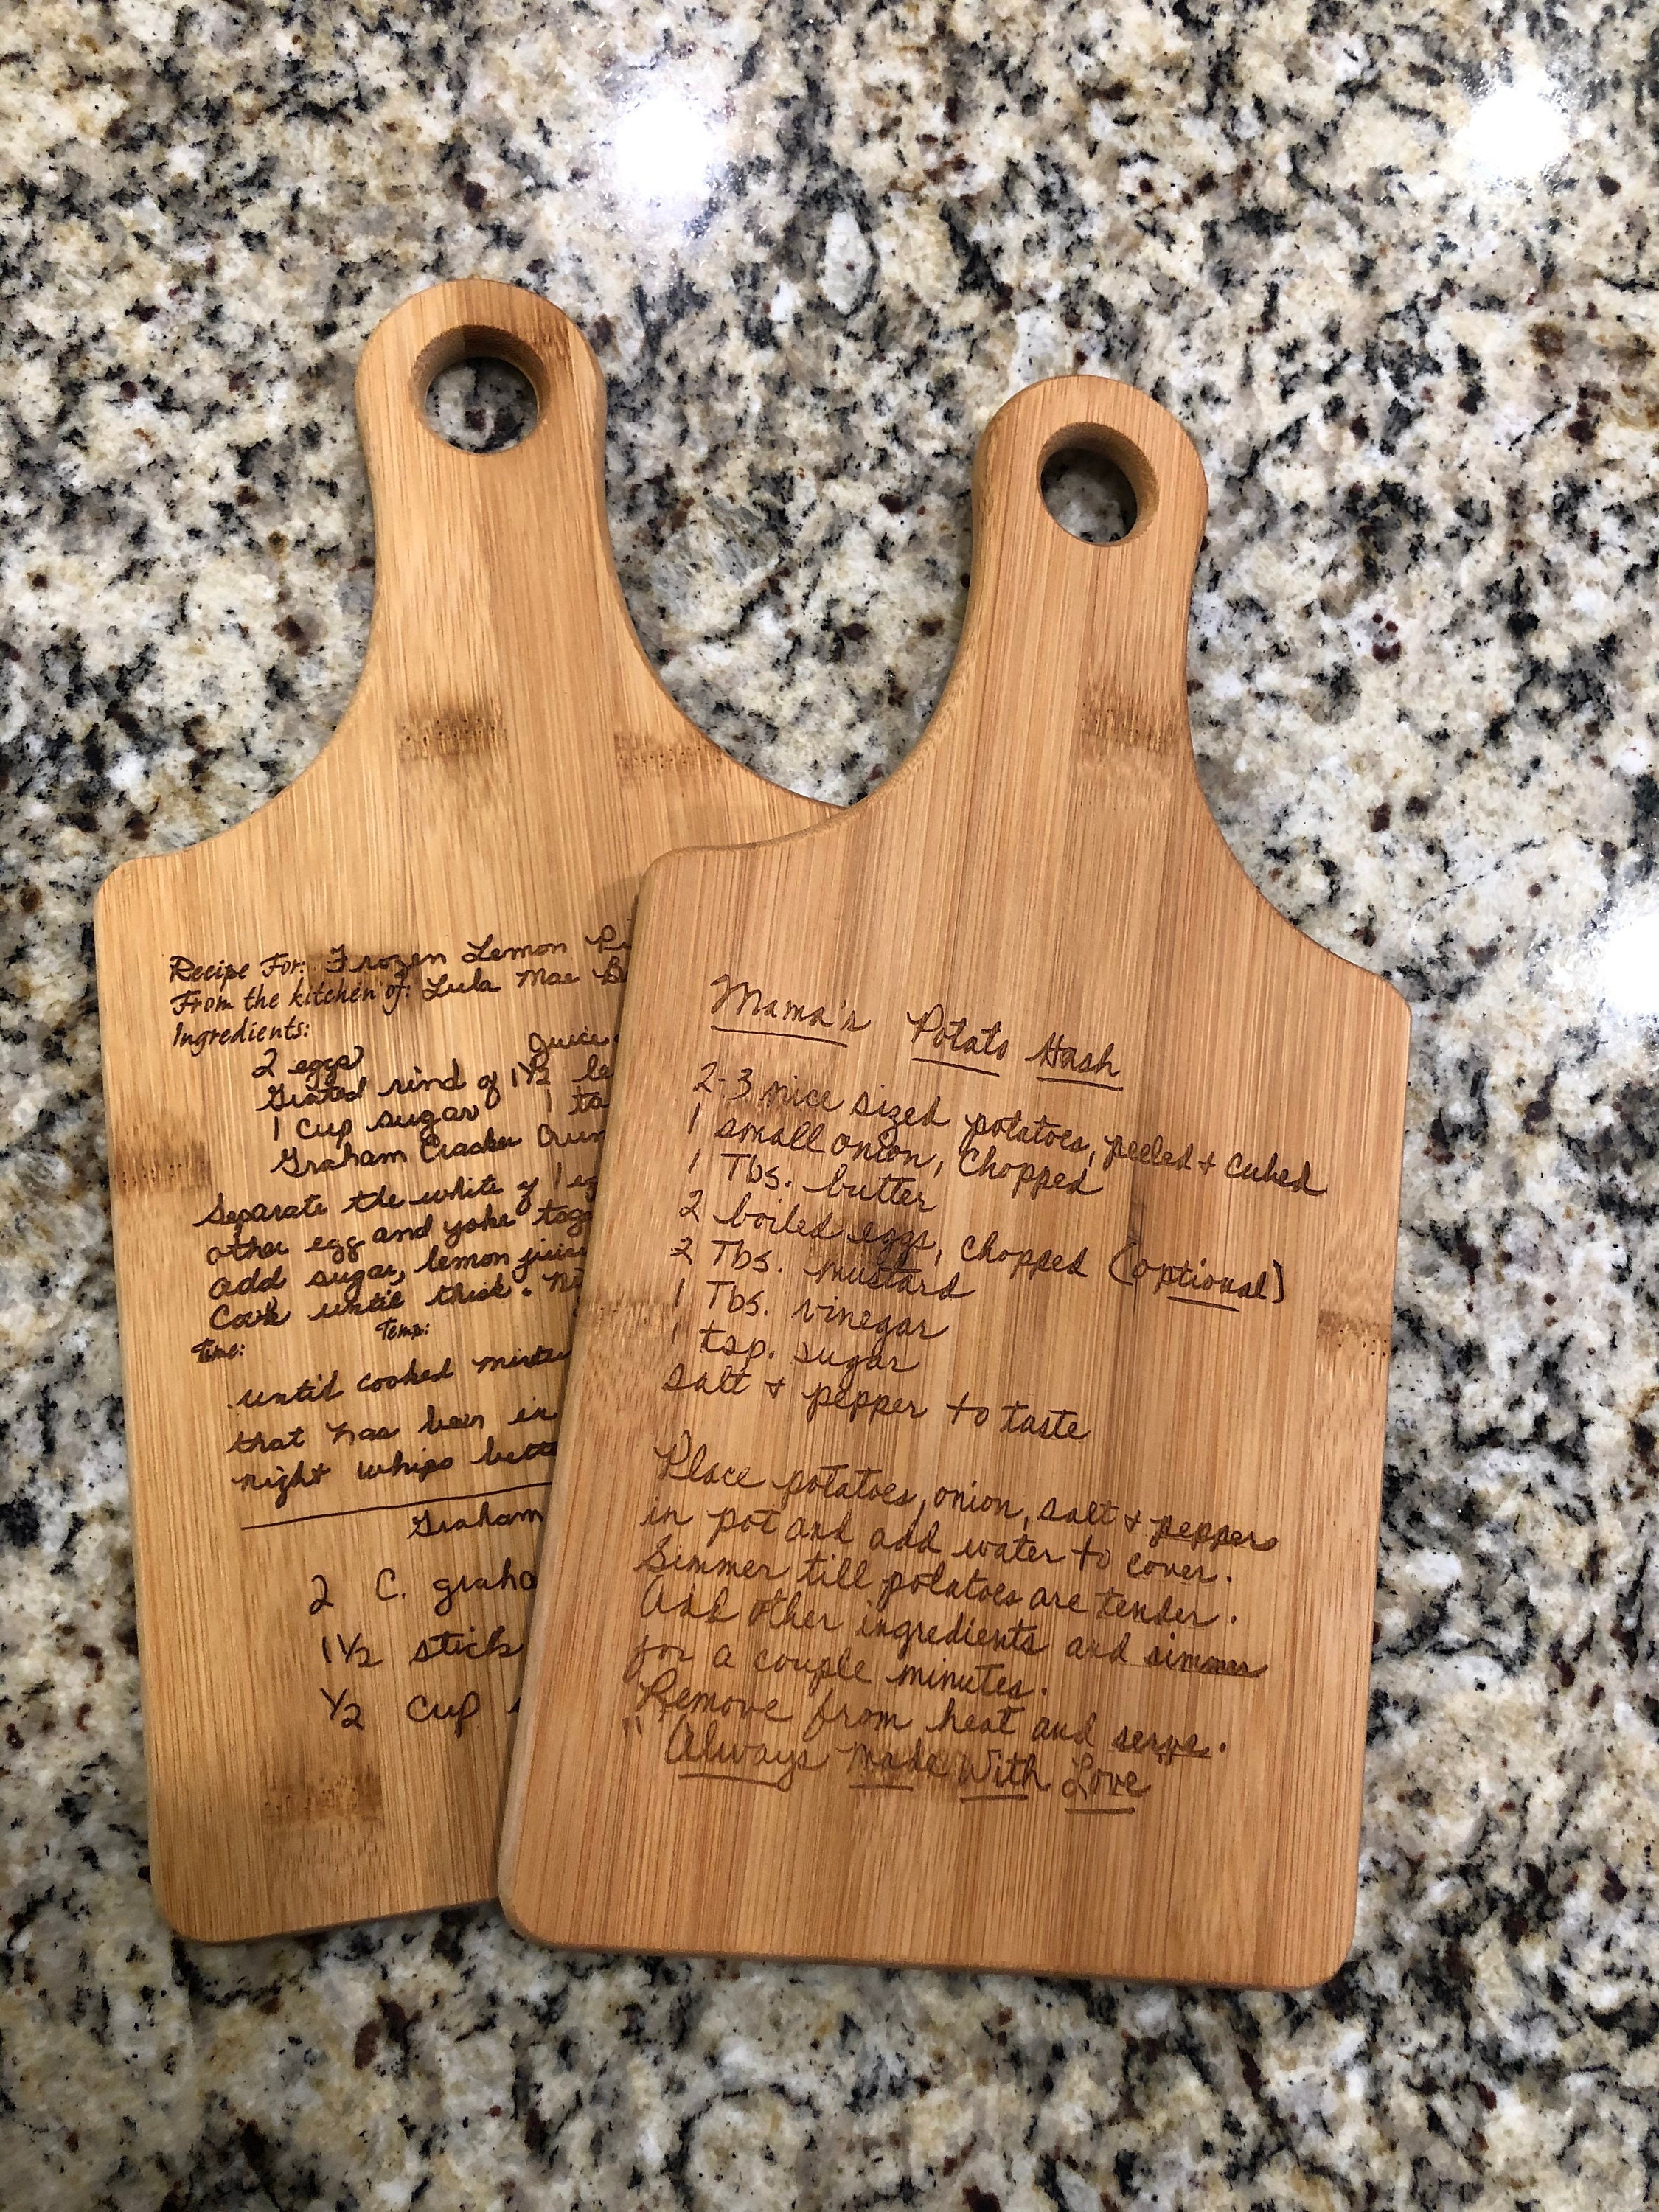 Recipe For: Frozen Lemon
From the kitchen of: Lula Mae
Ingredients:
2 eggs Juice
Grated rind of 1 1/2
1 cup sugar 1
Graham Cracker
Separate the white of 1
other egg and yoke
add sugar, lemon juice
Cook until thick.
Time: Temp:
until cooked
that has been in
right whips
Graham
2 C.
1 1/2 stick
1/2 cup
Mama's Potato Hash
2-3 nice sized potatoes, peeled + cubed
1 small onion, chopped
1 Tbs. butter
2 boiled eggs, chopped (optional)
2 Tbs. mustard
1 Tbs. vinegar
1 tsp. sugar
salt + pepper to taste
Place potatoes, onion, salt + peppers
in pot and add water to cover.
Simmer till potatoes are tender.
Add other ingredients and simmer
for a couple minutes.
Remove from heat and serve.
"Always Made With Love"